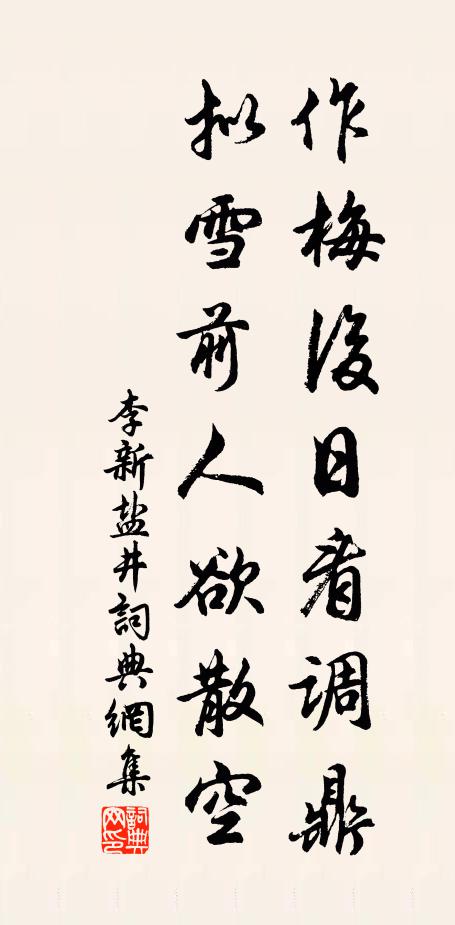 作梅後日看调鼎
拟雪前人欲散空
李新盐井詞典網集
詞典网印